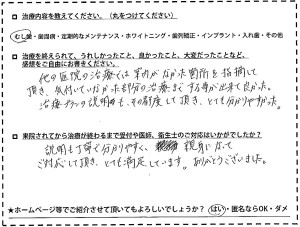 □ 治療内容を教えてください。（丸をつけてください）
むし歯・歯周病・定期的なメンテナンス・ホワイトニング・歯列矯正・インプラント・入れ歯・その他
□ 治療を終えられて、うれしかったこと、良かったこと、大変だったことなど、
感想をご自由にお書きください。
他の医院の治療では異常がなかった箇所を指摘して
頂き、気付いていなかった部分の治療まですることが出来て良かった。
治療の説明も、その都度して頂き、とても分かりやすかった。
□ 来院されてから治療が終わるまで受付や医師、衛生士のご対応はいかがでしたか？
説明も丁寧で分かりやすく、親身になって
ご対応して頂き、とても満足しています。ありがとうございました。
★ホームページ等でご紹介させて頂いてもよろしいでしょうか？ はい・匿名ならOK・ダメ